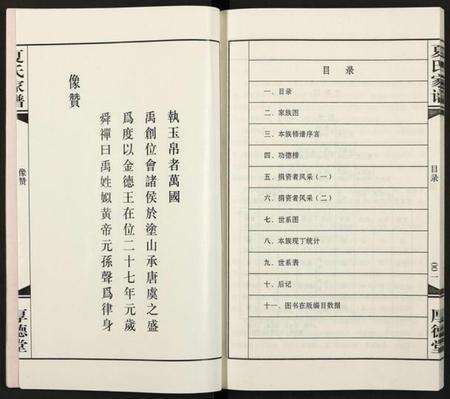 夏氏家譜
像贊
厚德堂
像贊
舜禪曰禹姓姒黃帝元孫聲爲律身
爲度以金德王在位二十七年元歲
禹創位會諸侯於塗山承唐虞之盛
執玉帛者萬國
目录
一、目录
二、家族图
三、本族修谱序言
四、功德榜
五、捐资者风采（一）
六、捐资者风采（二）
七、世系图
八、本族现丁统计
九、世系表
十、后记
十一、图书在版编目数据
夏氏家譜
目录
厚德堂